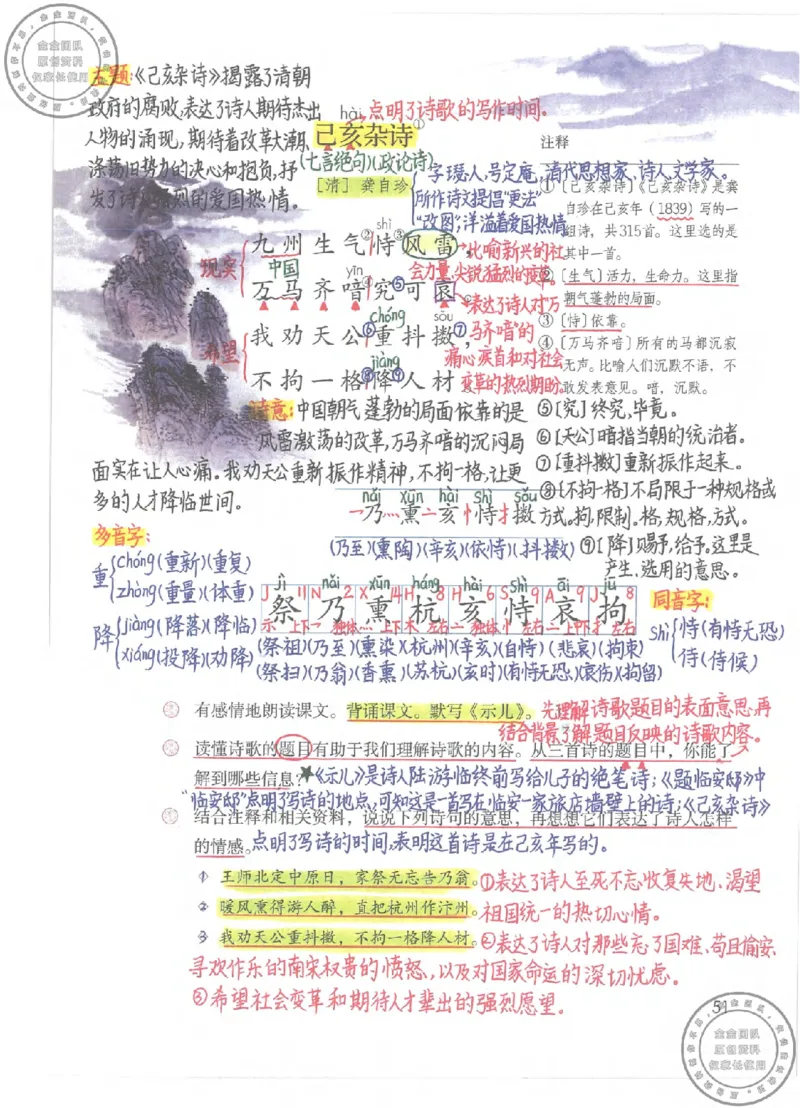 主题:《己亥杂诗》揭露了清朝
政府的腐败,表达了诗人期待杰出
人物的涌现,期待着改革大潮、
涤荡旧势力的决心和抱负,抒
发了诗人强烈的爱国热情。
hài
点明了诗歌的写作时间。
己亥杂诗①
(七言绝句)(政论诗)
[清] 龚自珍
字璱人,号定庵,清代思想家、诗人、文学家。
所作诗文提倡"更法"
"改图";洋溢着爱国热情
shì
现实
九州生气②恃③风雷
中国
比喻新兴的社
会力量,尖锐猛烈的改革。
yīn
万马齐喑④究⑤可哀
表达了诗人对"万
马齐喑"的
痛心疾首和对社会
变革的热烈期盼。
chóng
sǒu
希望
我劝天公⑥重抖擞⑦
jiàng
不拘一格⑧降⑨人材
注释
①[己亥杂诗]《己亥杂诗》是龚
自珍在己亥年(1839)写的一
组诗,共315首。这里选的是
其中一首。
②[生气]活力,生命力。这里指
朝气蓬勃的局面。
③[恃]依靠。
④[万马齐喑]所有的马都沉寂
无声。比喻人们沉默不语,不
敢发表意见。喑,沉默。
⑤[究]终究,毕竟。
⑥[天公]暗指当朝的统治者。
⑦[重抖擞]重新振作起来。
⑧[不拘一格]不局限于一种规格或
方式。拘,限制。格,规格,方式。
⑨[降]赐予,给予。这里是
产生、选用的意思。
诗意:中国朝气蓬勃的局面依靠的是
风雷激荡的改革,万马齐喑的沉闷局
面实在让人心痛。我劝天公重新振作精神,不拘一格,让更
多的人才降临世间。
nǎi xūn hài shì sǒu
乃 熏 亥 恃 擞
(乃至)(熏陶)(辛亥)(依恃)(抖擞)
多音字:
重 chóng(重新)(重复)
zhòng(重量)(体重)
降 jiàng(降落)(降临)
xiáng(投降)(劝降)
jì nǎi xūn háng hài shì āi jū
J 11 N 2 X 14 H 8 H 6 S 9 A 9 J 8
祭 乃 熏 杭 亥 恃 哀 拘
示 上下 独体 上下 木 左右 独体 左右 上中下 左右
(祭祖)(乃至)(熏染)(杭州)(辛亥)(自恃)(悲哀)(拘束)
(祭扫)(乃翁)(香熏)(苏杭)(亥时)(有恃无恐)(哀伤)(拘留)
同音字:
shì 恃(有恃无恐)
侍(侍候)
有感情地朗读课文。背诵课文。默写《示儿》。
先理解诗歌题目的表面意思,再
结合背景了解题目反映的诗歌内容。
读懂诗歌的题目有助于我们理解诗歌的内容。从三首诗的题目中,你能了
解到哪些信息?★《示儿》是诗人陆游临终前写给儿子的绝笔诗;《题临安邸》中
"临安邸"点明了写诗的地点,可知这是一首写在临安一家旅店墙壁上的诗;《己亥杂诗》
结合注释和相关资料,说说下列诗句的意思,再想想它们表达了诗人怎样
的情感。点明了写诗的时间,表明这首诗是在己亥年写的。
1 王师北定中原日,家祭无忘告乃翁。①表达了诗人至死不忘收复失地、渴望
2 暖风熏得游人醉,直把杭州作汴州。祖国统一的热切心情。
3 我劝天公重抖擞,不拘一格降人材。②表达了诗人对那些忘了国难、苟且偷安、
寻欢作乐的南宋权贵的愤怒,以及对国家命运的深切忧虑。
③希望社会变革和期待人才辈出的强烈愿望。
金金团队
原创资料
仅家长使用
金金团队
原创资料
仅家长使用